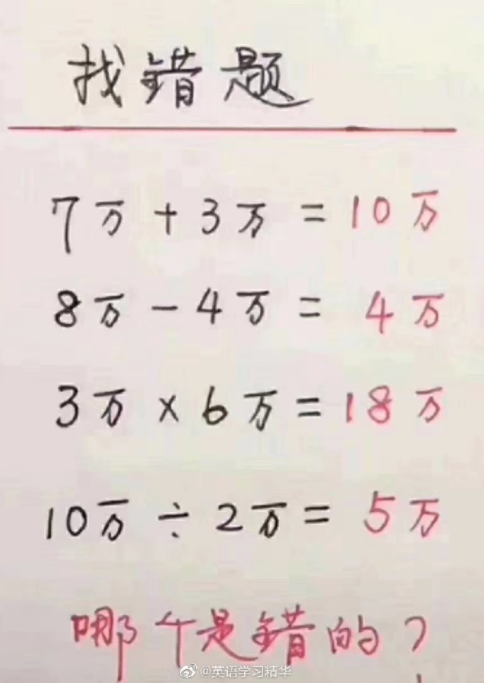 找错题
7万+3万=10万
8万-4万=4万
3万×6万=18万
10万÷2万=5万
哪个是错的?
@英语学习精华